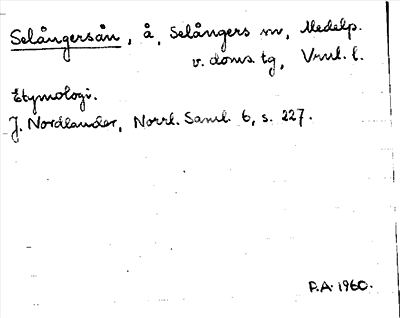 Selångersån, å, Selångers sn, Medelp.
v. doms. tg, Vrnl. l.
Etymologi.
J. Nordlander, Norrl. Saml. 6, s. 227.
P.A. 1960.